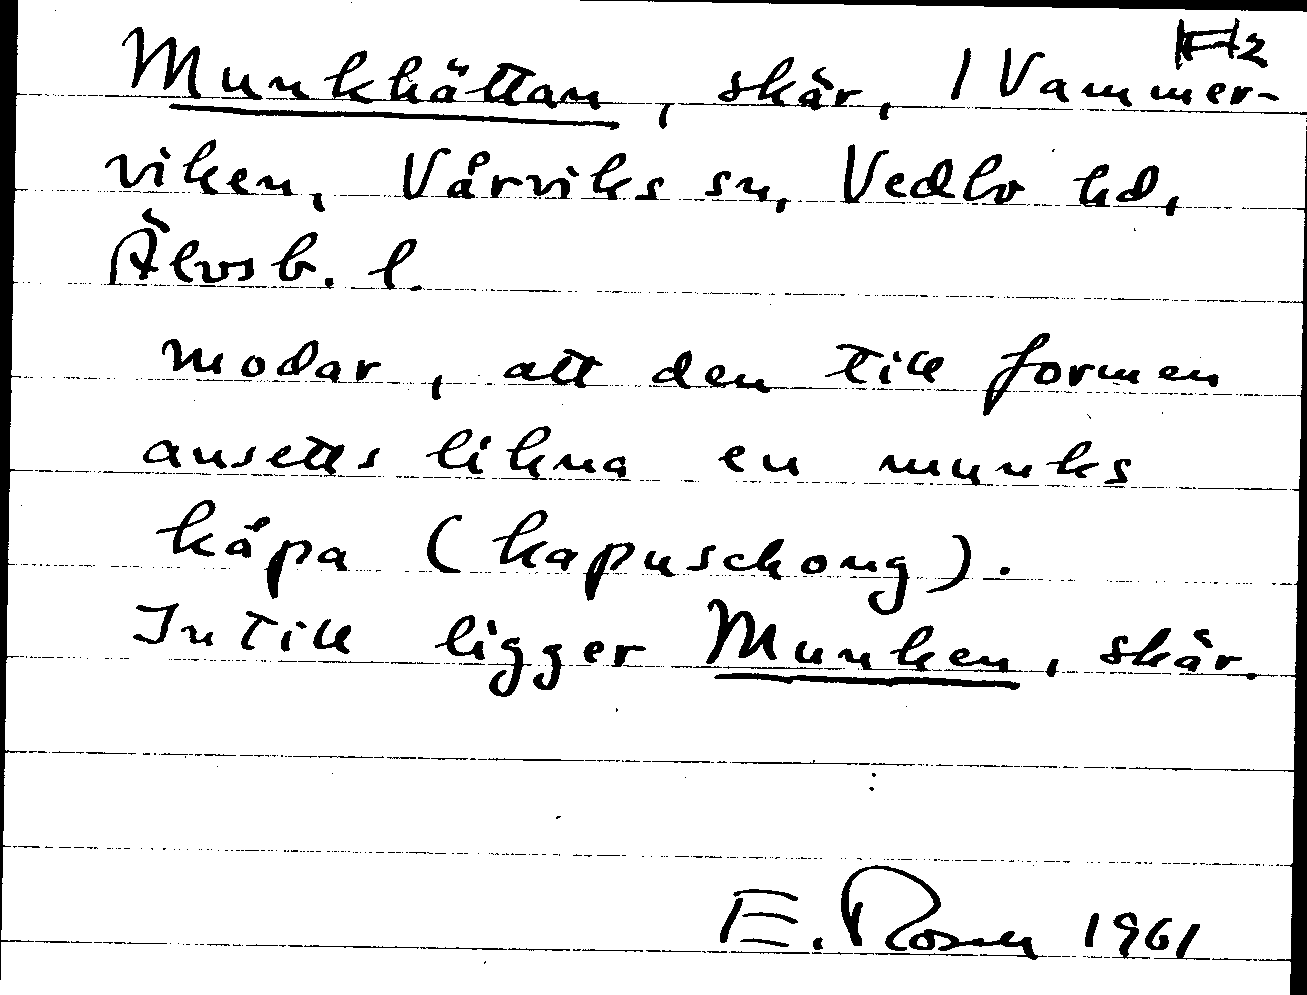 Munkhättan, skär, i Vammer-
viken, Vårviks sn, Vedbo hd,
Älvsb. l.
modar, att den till formen
ansetts likna en munks
kåpa (kapuschong).
Intill ligger Munken, skär.
E. Rosen 1961